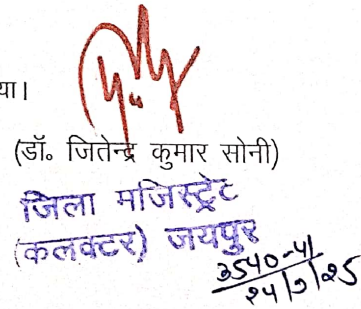 या।
(डॉ० जितेन्द्र कुमार सोनी)
जिला मजिस्ट्रेट
(कलक्टर) जयपुर
3540-41